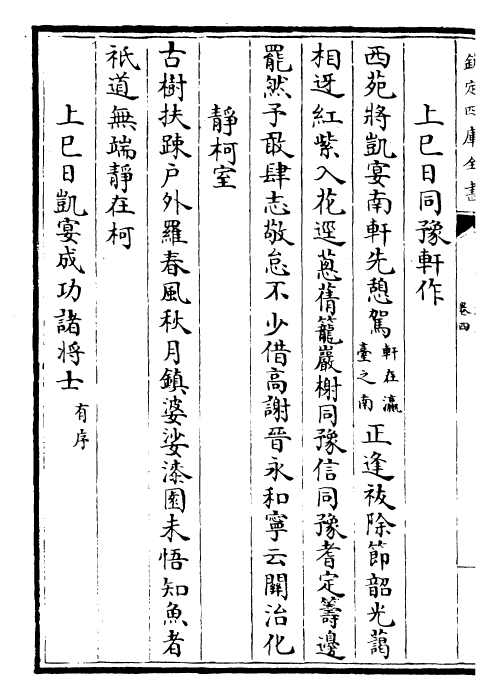 欽定四庫全書
卷四
上巳日同豫軒作
西苑將凱宴南軒先憩駕軒在瀛臺之南正逢祓除節韶光藹
相迓紅紫入花逕蔥蒨籠巖榭同豫信同豫耆定籌邊
罷然予敢肆志敬怠不少借高謝晉永和寧云關治化
靜柯室
古樹扶踈戶外羅春風秋月鎮婆娑漆園未悟知魚者
祇道無端靜在柯
上巳日凱宴成功諸將士有序